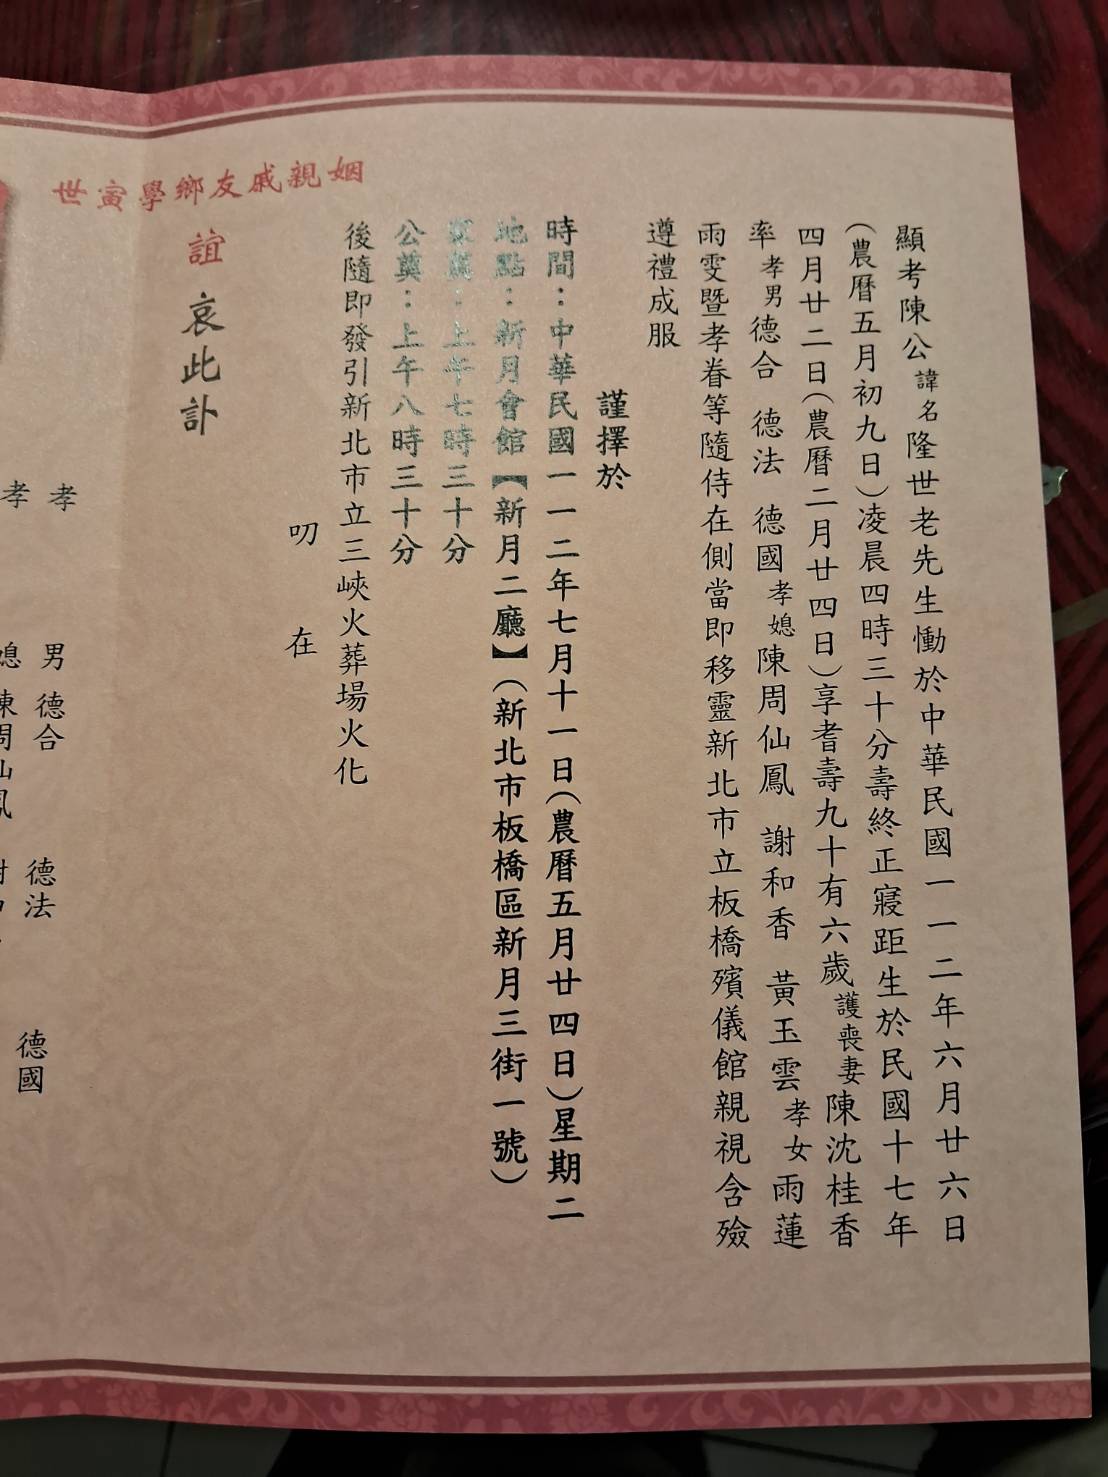 顯考陳公諱名隆世老先生慟於中華民國一一二年六月廿六日
(農曆五月初九日)凌晨四時三十分壽終正寢距生於民國十七年
四月廿二日(農曆二月廿四日)享耆壽九十有六歲護喪妻陳沈桂香
率孝男德合 德法 德國孝媳陳周仙鳳 謝和香 黃玉雲孝女雨蓮
雨雯暨孝眷等隨侍在側當即移靈新北市立板橋殯儀館親視含殮
遵禮成服
謹擇於
時間：中華民國一一二年七月十一日(農曆五月廿四日)星期二
地點：新月會館【新月二廳】(新北市板橋區新月三街一號)
家奠：上午七時三十分
公奠：上午八時三十分
後隨即發引新北市立三峽火葬場火化
叨 在
姻親戚友鄉學寅世
誼 哀此訃
孝 男 德合 德法 德國
孝 媳 陳周仙鳳